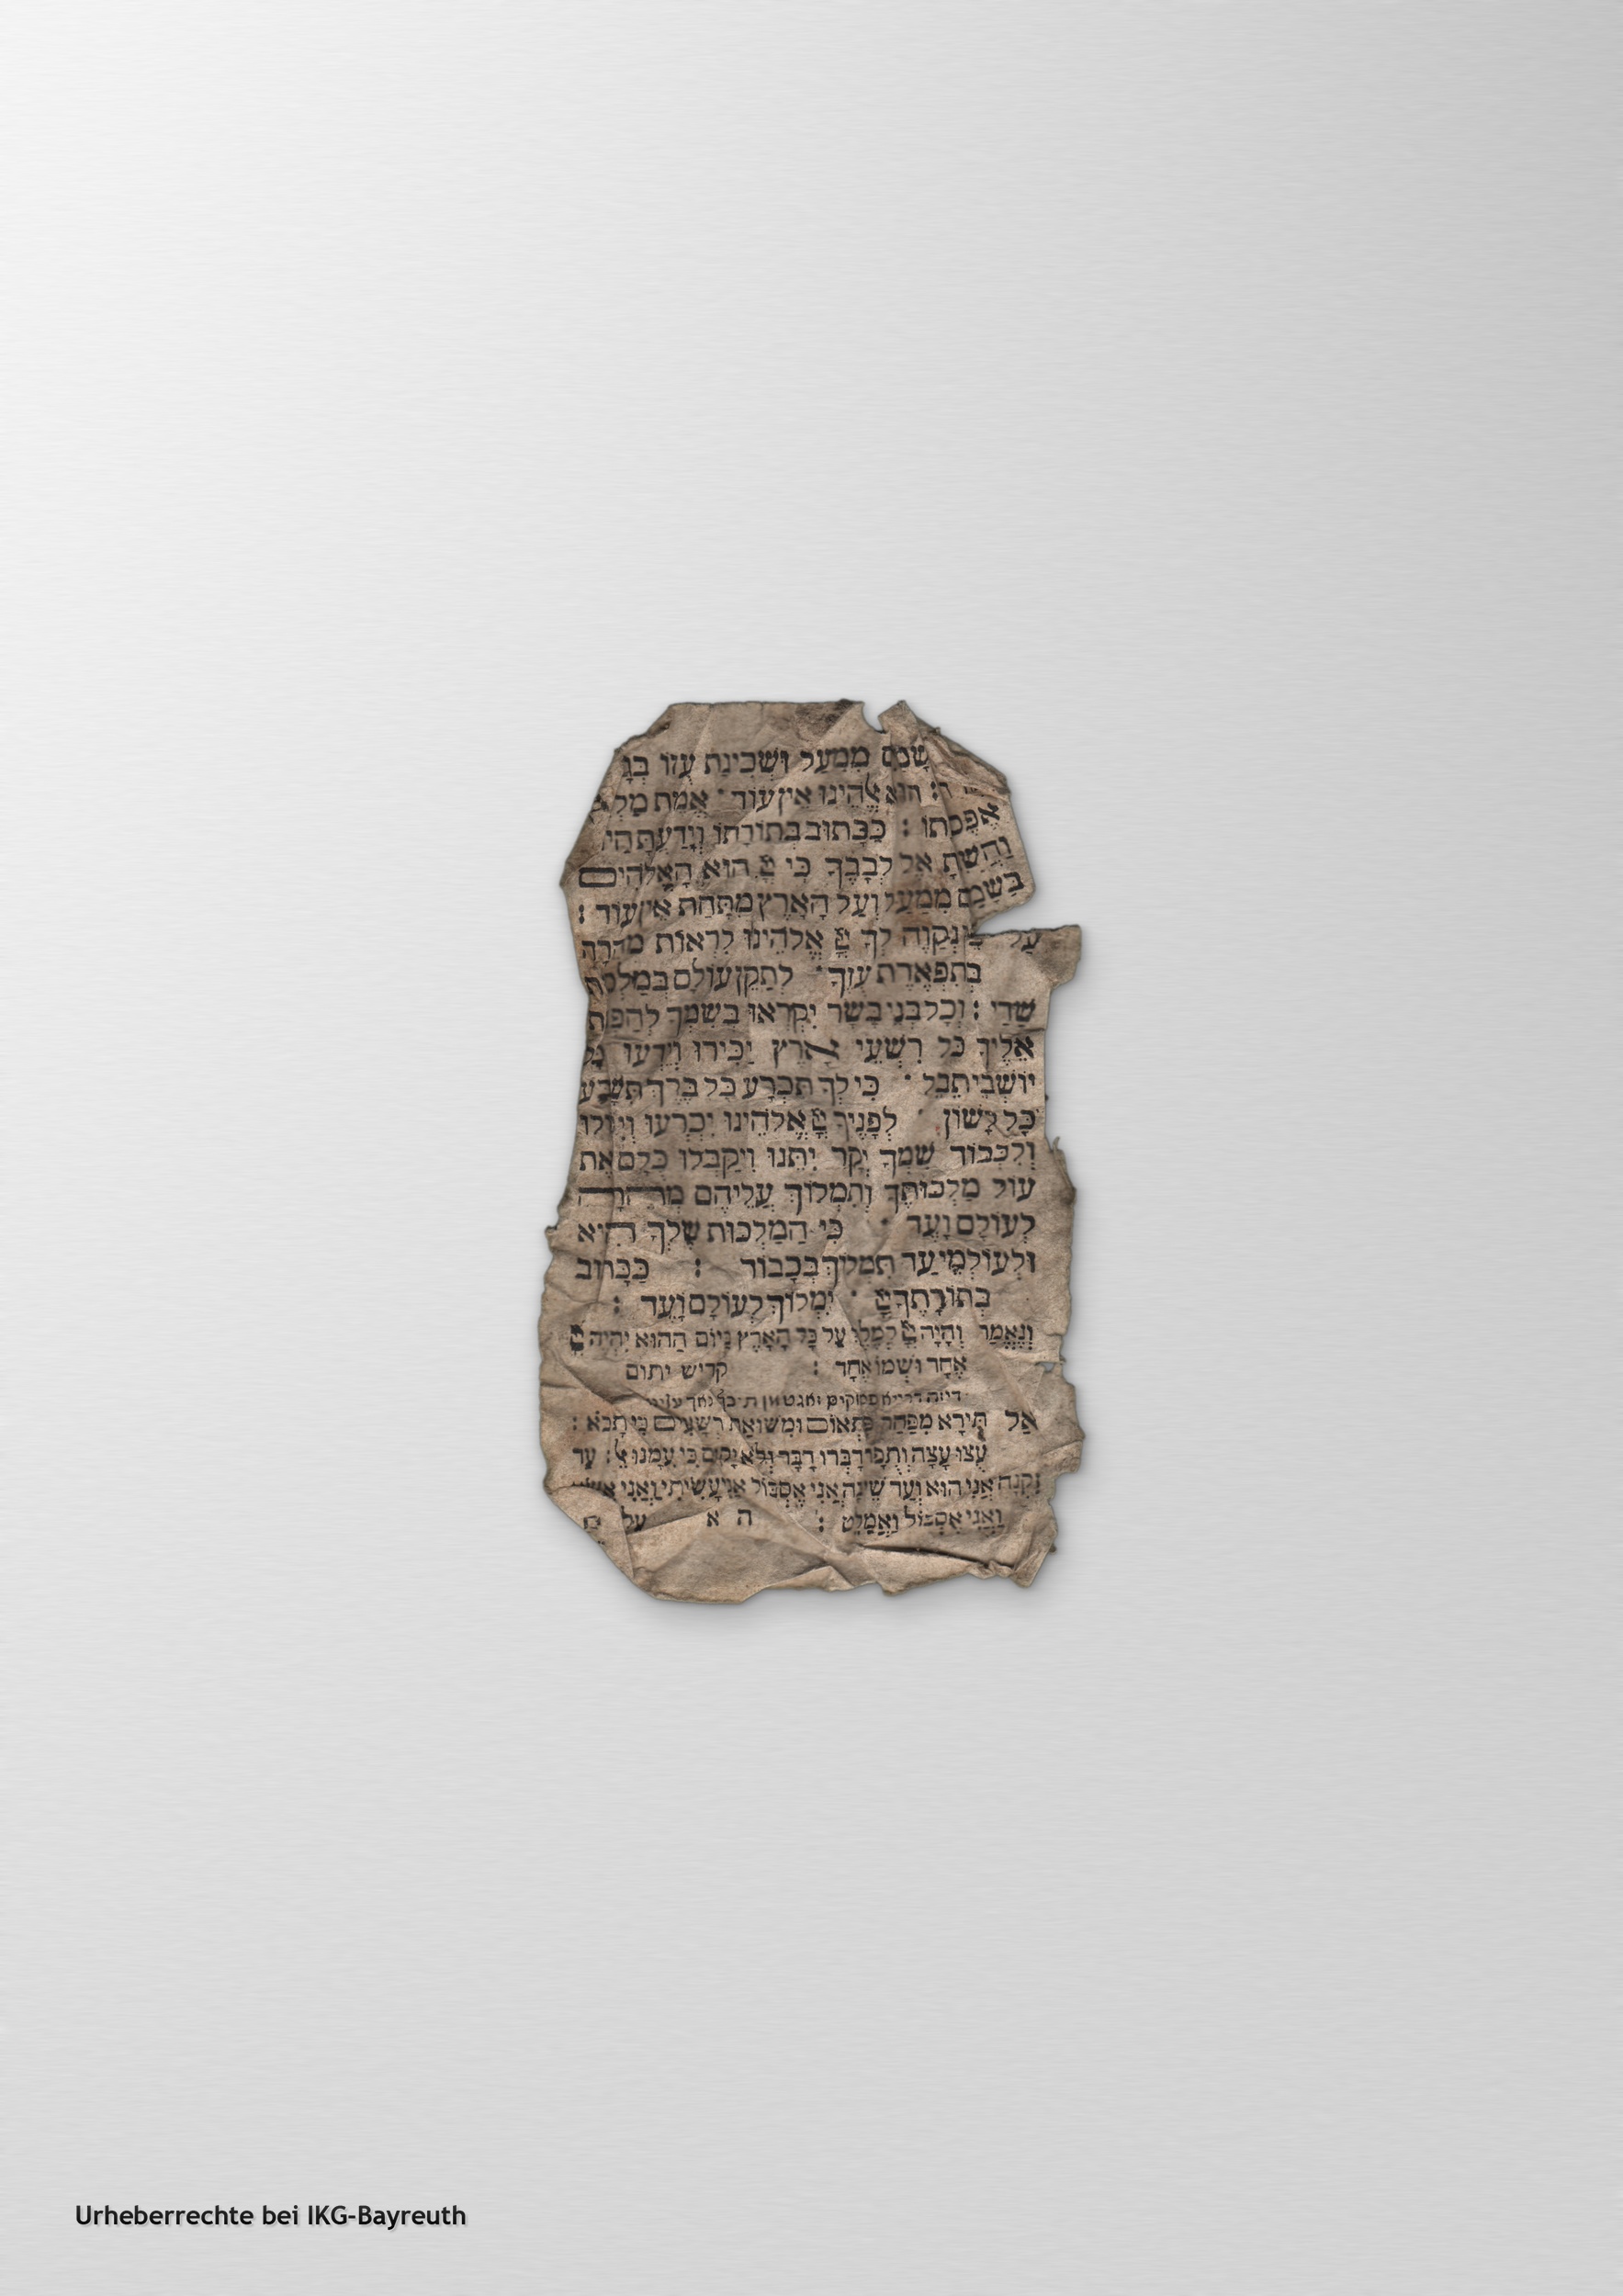 שָׁמַיִם מִמַּעַל וּשְׁכִינַת עֻזּוֹ בְּגָ
הוּא אֱלֹהֵינוּ אֵין עוֹד · אֱמֶת מַלְ
אֶפֶס זוּלָתוֹ : כַּכָּתוּב בְּתוֹרָתוֹ וְיָדַעְתָּ הַי
וַהֲשֵׁבֹתָ אֶל לְבָבֶךָ כִּי יְיָ הוּא הָאֱלֹהִים
בַּשָּׁמַיִם מִמַּעַל וְעַל הָאָרֶץ מִתַּחַת אֵין עוֹד :
עַל כֵּן נְקַוֶּה לְךָ יְיָ אֱלֹהֵינוּ לִרְאוֹת מְהֵרָה
בְּתִפְאֶרֶת עֻזֶּךָ · לְתַקֵּן עוֹלָם בְּמַלְכוּת
שַׁדַּי : וְכָל בְּנֵי בָשָׂר יִקְרְאוּ בִשְׁמֶךָ לְהַפְנוֹת
אֵלֶיךָ כָּל רִשְׁעֵי אָרֶץ יַכִּירוּ וְיֵדְעוּ כָּל
יוֹשְׁבֵי תֵבֵל · כִּי לְךָ תִּכְרַע כָּל בֶּרֶךְ תִּשָּׁבַע
כָּל לָשׁוֹן · לְפָנֶיךָ יְיָ אֱלֹהֵינוּ יִכְרְעוּ וְיִפּוֹלוּ
וְלִכְבוֹד שִׁמְךָ יְקָר יִתֵּנוּ וִיקַבְּלוּ כֻלָּם אֶת
עוֹל מַלְכוּתֶךָ וְתִמְלוֹךְ עֲלֵיהֶם מְהֵרָה
לְעוֹלָם וָעֶד · כִּי הַמַּלְכוּת שֶׁלְּךָ הִיא
וּלְעוֹלְמֵי עַד תִּמְלוֹךְ בְּכָבוֹד : כַּכָּתוּב
בְּתוֹרָתֶךָ יְיָ · יִמְלוֹךְ לְעוֹלָם וָעֶד :
וְנֶאֱמַר וְהָיָה יְיָ לְמֶלֶךְ עַל כָּל הָאָרֶץ בַּיּוֹם הַהוּא יִהְיֶה יְיָ
אֶחָד וּשְׁמוֹ אֶחָד : קדיש יתום
פסוקים
אַל תִּירָא מִפַּחַד פִּתְאוֹם וּמִשּׁוֹאַת רְשָׁעִים כִּי תָבֹא :
עֻצוּ עֵצָה וְתֻפָר דַּבְּרוּ דָבָר וְלֹא יָקוּם כִּי עִמָּנוּ אֵל : עַד
זִקְנָה אֲנִי הוּא וְעַד שֵׂיבָה אֲנִי אֶסְבּוֹל אֲנִי עָשִׂיתִי וַאֲנִי אֶשָּׂא
וַאֲנִי אֶסְבּוֹל וַאֲמַלֵּט : ה א על
Urheberrechte bei IKG-Bayreuth